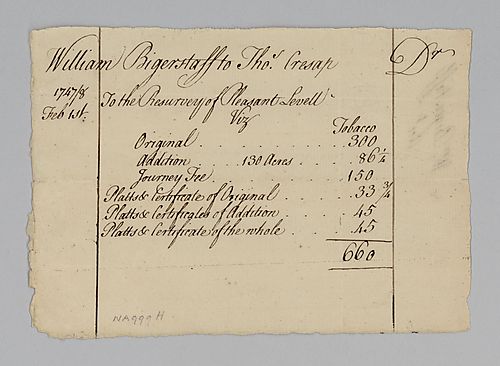 William Bigerstaff to Thos. Cresap Dr
1747/8
Feb 1st
To the Resurvey of Pleasant Levell
Viz
Tobacco
Original . . . . . . . . 300
Addition . . . 130 Acres . . . 86 1/4
Journey Fee . . . . . . 150
Platts & Certificate of Original . . . . 33 3/4
Platts & Certificates of Addition . . . . 45
Platts & Certificate of the whole . . . . 45
660
NA999H